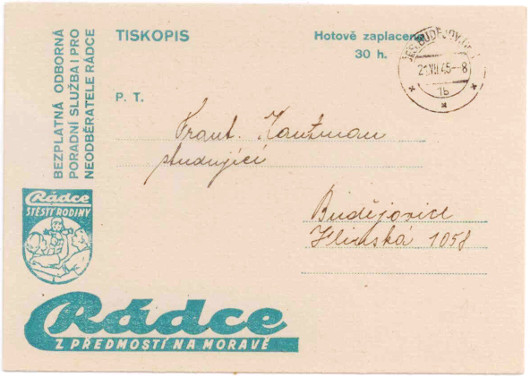 BEZPLATNÁ ODBORNÁ
PORADNÍ SLUŽBA I PRO
NEODBĚRATELE RÁDCE
TISKOPIS
Hotově zaplaceno
30 h.
1b
P. T.
Frant. Kautman
studující
Budějovice
Hlinská 1058
Rádce
ŠTĚSTÍ RODINY
Rádce
Z PŘEDMOSTÍ NA MORAVĚ